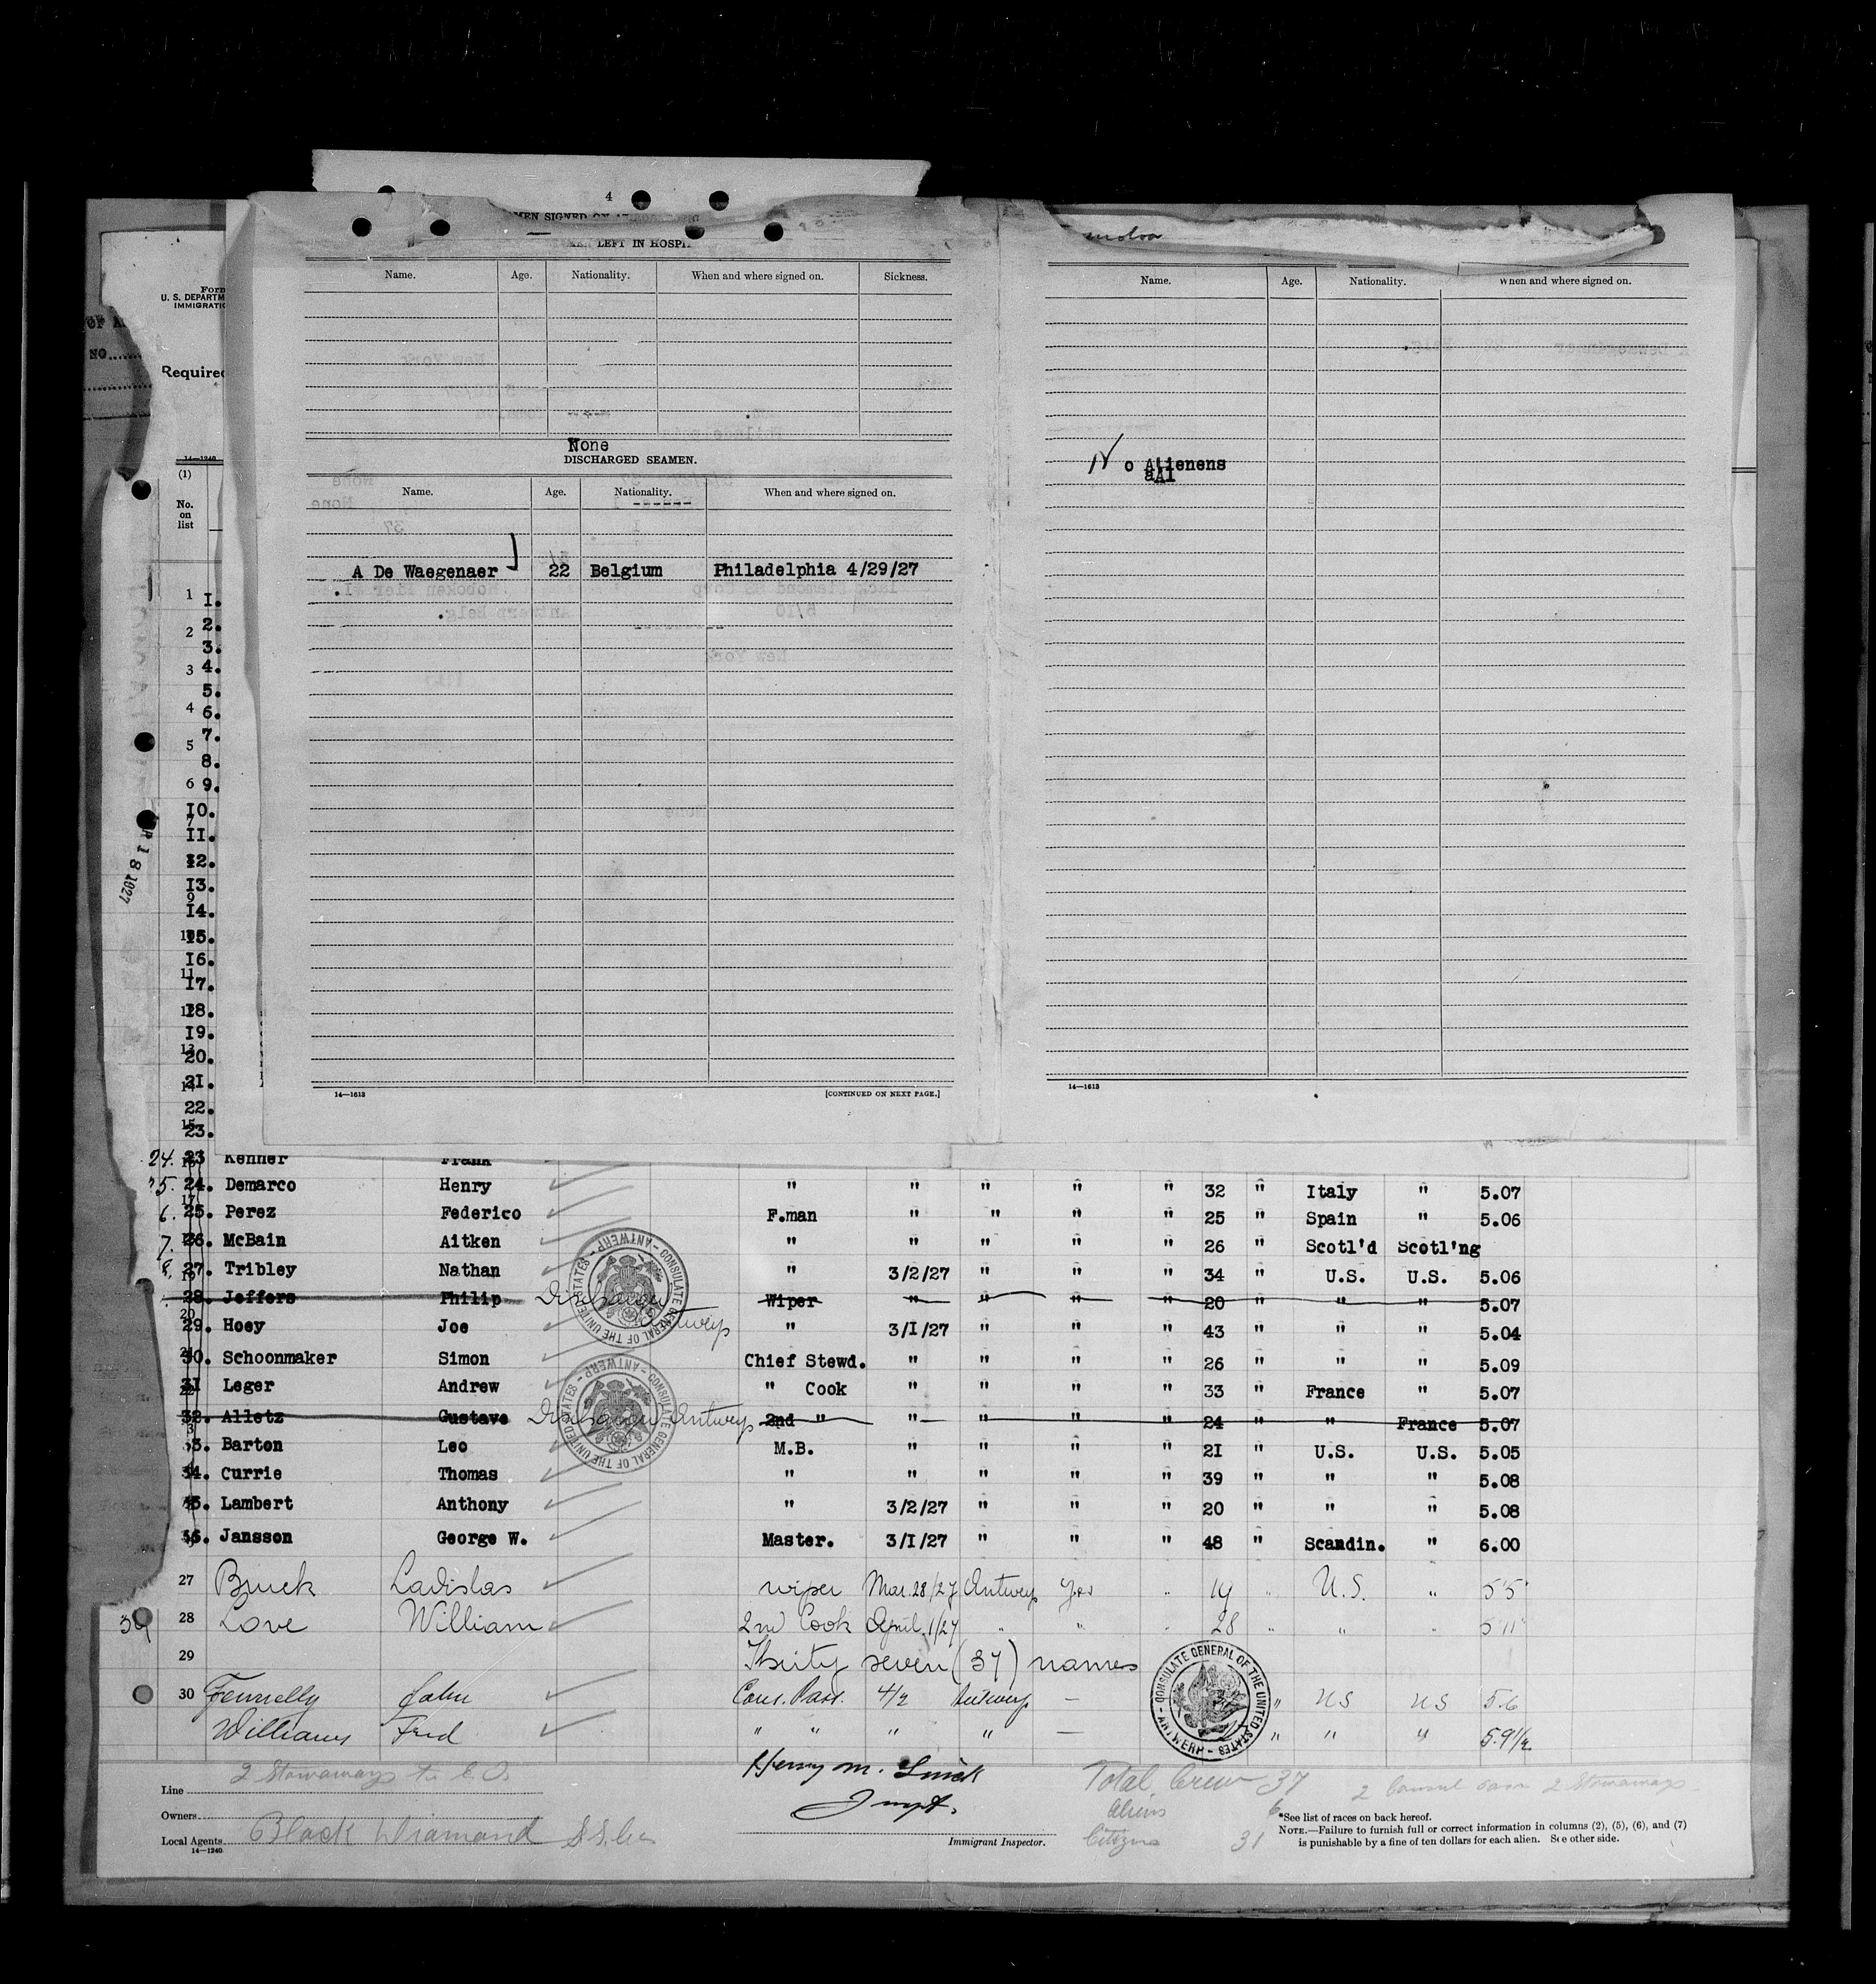 4
LEFT IN HOSPI
Name. Age. Nationality. When and where signed on. Sickness.
None
DISCHARGED SEAMEN.
Name. Age. Nationality. When and where signed on.
A De Waegenaer 22 Belgium Philadelphia 4/29/27
14—1613 [CONTINUED ON NEXT PAGE.]
Name. Age. Nationality. When and where signed on.
14—1613
Form
U. S. DEPARTM
IMMIGRATIO
NO
Required
14—1240
(1)
No.
on
list
1 I.
2 2.
3.
3 4.
5.
4 6.
5 7.
8.
6 9.
10.
7
II.
12.
13.
9
14.
15.
16.
11
17.
18.
19.
13
20.
21.
22.
15
23.
24. 23 Kenner Frank
24. Demarco Henry " " " " " 32 " Italy " 5.07
25. Perez Federico F.man " " " " 25 " Spain " 5.06
26. McBain Aitken " " " " " 26 " Scotl'd Scotl'ng
27. Tribley Nathan " 3/2/27 " " " 34 " U.S. U.S. 5.06
28. Jeffers Philip Wiper " " " " 20 " " " 5.07
29. Hoey Joe " 3/I/27 " " " 43 " " " 5.04
30. Schoonmaker Simon Chief Stewd. " " " " 26 " " " 5.09
31 Leger Andrew " Cook " " " " 33 " France " 5.07
32. Alletz Gustave Antwerp 2nd " " " " " 24 " " France 5.07
33. Barton Leo M.B. " " " " 21 " U.S. U.S. 5.05
34. Currie Thomas " " " " " 39 " " " 5.08
35. Lambert Anthony " 3/2/27 " " " 20 " " " 5.08
36. Jansson George W. Master. 3/I/27 " " " 48 " Scandin. " 6.00
27 Bruck Ladislas wiper Mar. 28/27 Antwerp Yes " 19 " U.S. " 5'5"
28 Love William 2nd Cook April 1/27 " " " 28 " " " 5'11"
29 Thirty seven (37) names
30 Fennelly John Cons. Pass. 4/2 Antwerp — " US US 5.6
Williams Fred " " " " — " " " 5.9½
CONSULATE GENERAL OF THE UNITED STATES – ANTWERP –
CONSULATE GENERAL OF THE UNITED STATES – ANTWERP –
CONSULATE GENERAL OF THE UNITED STATES – ANTWERP –
2 Stowaways
Line
Owners
Local Agents Black Diamond S.S. Co
14—1240
Immigrant Inspector.
Total Crew 37
Aliens 6
Citizens 31
*See list of races on back hereof.
NOTE.—Failure to furnish full or correct information in columns (2), (5), (6), and (7)
is punishable by a fine of ten dollars for each alien. See other side.